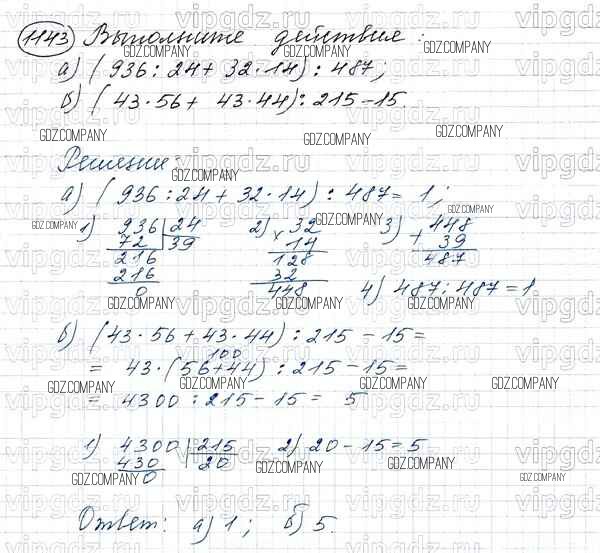 1143 Выполните действия:
а) (936 : 24 + 32 · 14) : 487;
б) (43 · 56 + 43 · 44) : 215 - 15
Решение:
а) (936 : 24 + 32 · 14) : 487 = 1;
1) 936 24 2) 32 3) 448
72 39 × 14 + 39
216 128 487
216 32
0 448 4) 487 : 487 = 1
б) (43 · 56 + 43 · 44) : 215 - 15 =
100
= 43 · (56 + 44) : 215 - 15 =
= 4300 : 215 - 15 = 5
1) 4300 215 2) 20 - 15 = 5
430 20
0
Ответ: а) 1; б) 5.
vipgdz.ru
GDZ.COMPANY